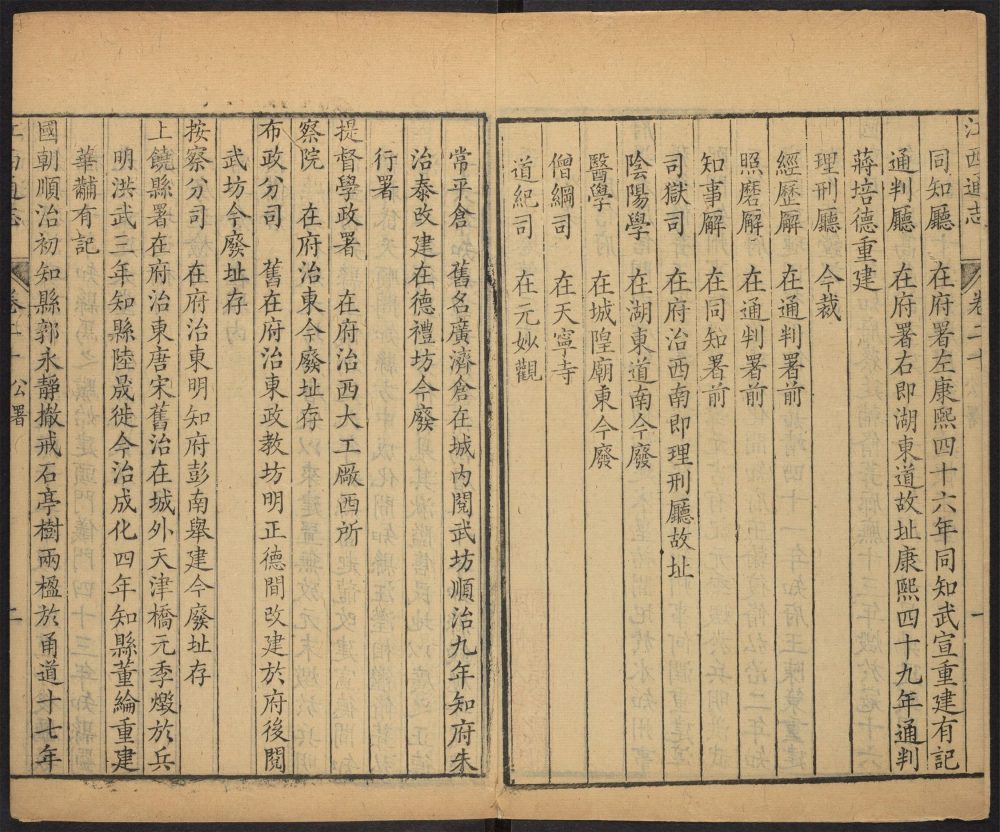 江西通志
卷二十
一
同知廳　在府署左康熙四十六年同知武宣重建有記
通判廳　在府署右即湖東道故址康熙四十九年通判
蔣培德重建
理刑廳　今裁
經歷廨　在通判署前
照磨廨　在通判署前
知事廨　在同知署前
司獄司　在府治西南即理刑廳故址
陰陽學　在湖東道南今廢
醫學　在城隍廟東今廢
僧綱司　在天寧寺
道紀司　在元妙觀
常平倉　舊名廣濟倉在城內閱武坊順治九年知府朱
治泰改建在德禮坊今廢
行署
提督學政署　在府治西大工厰西所
察院　在府治東今廢址存
布政分司　舊在府治東政教坊明正德間改建於府後閱
武坊今廢址存
按察分司　在府治東明知府彭南舉建今廢址存
上饒縣署在府治東唐宋舊治在城外天津橋元季燬於兵
明洪武三年知縣陸晟徙今治成化四年知縣董綸重建
華黼有記
國朝順治初知縣郭永靜撤戒石亭樹兩楹於甬道十七年
江西通志
卷二十　公署
二